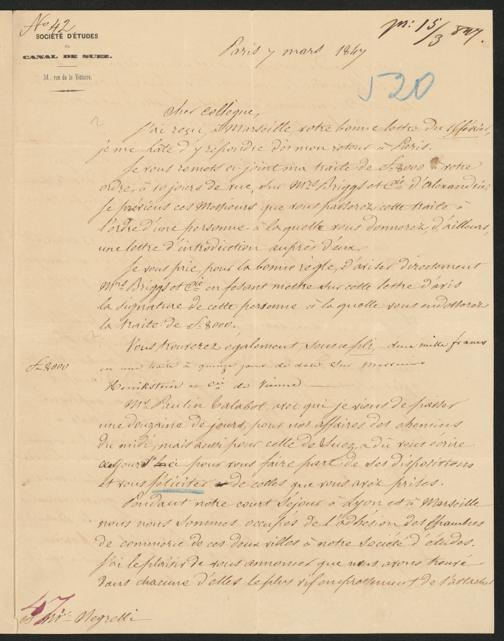 No 42
SOCIÉTÉ D'ÉTUDES
CANAL DE SUEZ.
34, rue de la Victoire.
pr: 15/3 847.
Paris 7 mars 1847
520
cher collègue,
J'ai reçu, à Marseille, votre bonne lettre du février,
je me hâte d'y répondre dès mon retour à Paris.
Je vous remets ci joint ma traite de F. 8000 à votre
ordre, à 10 jours de vue, sur Mrs Briggs et Cie d'Alexandrie.
Je préviens ces Messieurs que vous passerez cette traite à
l'ordre d'une personne à laquelle vous donnerez, d'ailleurs,
une lettre d'introduction auprès d'eux.
Je vous prie, pour la bonne règle, d'aviser directement
Mrs Briggs et Cie en fesant mettre sur cette lettre d'avis
la signature de cette personne à laquelle vous endosserez
la traite de F. 8000.
Vous trouverez également sous ce pli deux mille francs
F. 2000
en une traite à quinze jours de date sur Messieurs
Henikstein et Cie de Vienne
Mr Paulin Talabot, avec qui je viens de passer
une douzaine de jours, pour nos affaires des chemins
du midi, mais aussi pour celle de Suez, a dû vous écrire
pour vous faire part de ses dispositions
et vous féliciter de celles que vous avez prises.
Pendant notre court séjour à Lyon et à Marseille
nous nous sommes occupés de l'adhésion des Chambres
de commerce de ces deux villes à notre Société d'études.
J'ai le plaisir de vous annoncer que nous avons trouvé
dans chacune d'elles le plus vif empressement de s'attacher
47
Mr. Negrelli